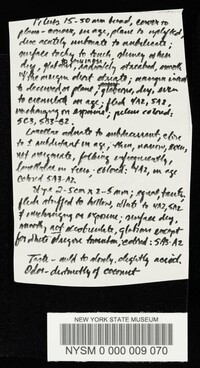 Pileus 15-50 mm broad, convex to
plano-convex, in age, plane to uplifted,
disc acutely umbonate to umbilicate;
surface tacky to touch, shiny when
dry, glabrous, radiately streaked, smooth
of the margin disrt margin incurved
to decurved or plane; glabrous, dry, even
to crenulate in age; flesh 4A2, 5A2,
unchanging on exposure; pileus colored:
5C3, 5B3-B2.
Lamellae adnate to subdecurrent, close
to subdistant in age, thin, narrow, even,
not marginate, forking infrequently,
lamellulae in tiers; colored: 4A2, in age
colored 5A3-A2.
Stipe 2-5cm x 2-5mm; equal, terete,
flesh stuffed to hollow, white to 4A2, 5A2
& unchanging on exposure; surface dry,
smooth, not scrobiculate, glabrous except
for white strigose tomentum, colored: 5A3-A2
Taste - mild to slowly, slightly acrid.
Odor - distinctly of coconut
NEW YORK STATE MUSEUM
NYSM 0 000 009 070